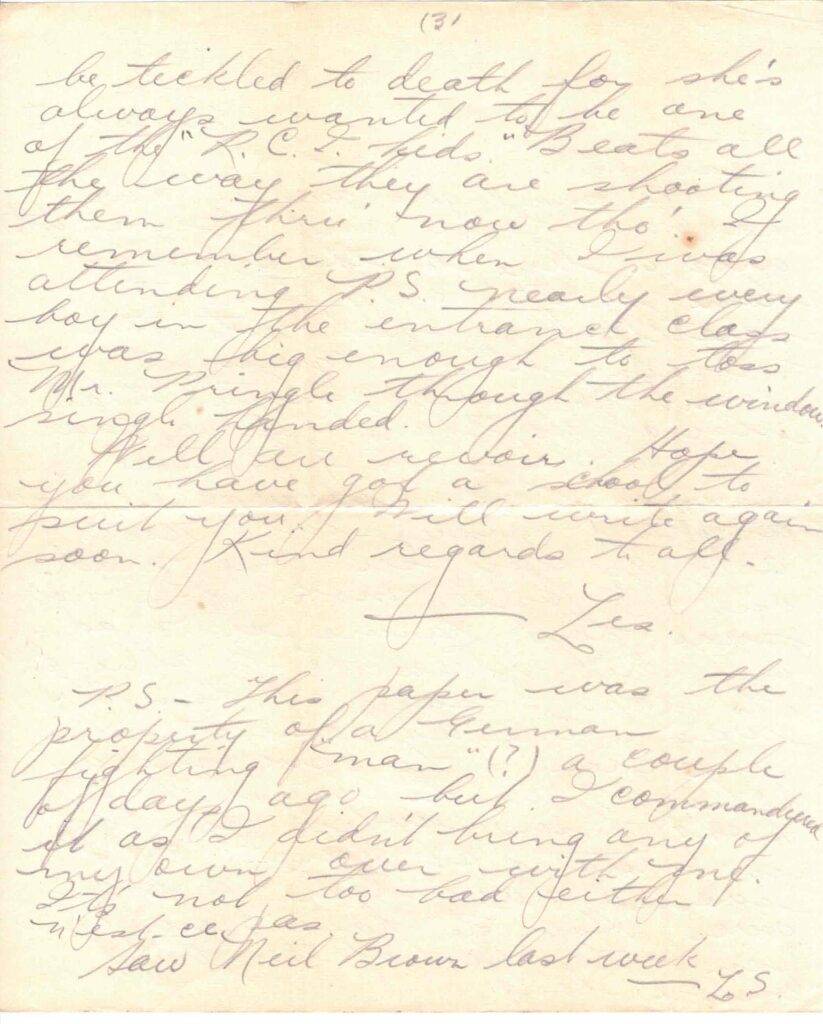 (3)
be tickled to death for she's
always wanted to be one
of the "R. C. I. kids." Beats all
the way they are shooting
them thru' now tho'. I
remember when I was
attending P.S. nearly every
boy in the entrance class
was big enough to toss
Mr. Pringle through the window
single handed.
Well au revoir. Hope
you have got a school to
suit you. Will write again
soon. Kind regards to all.
— Les.
P.S. – This paper was the
property of a German
fighting "man" (?) a couple
of days ago but I commandeered
it as I didn't bring any of
my own over with me.
It's not too bad either
n'est-ce pas.
Saw Neil Brown last week
— L.S.